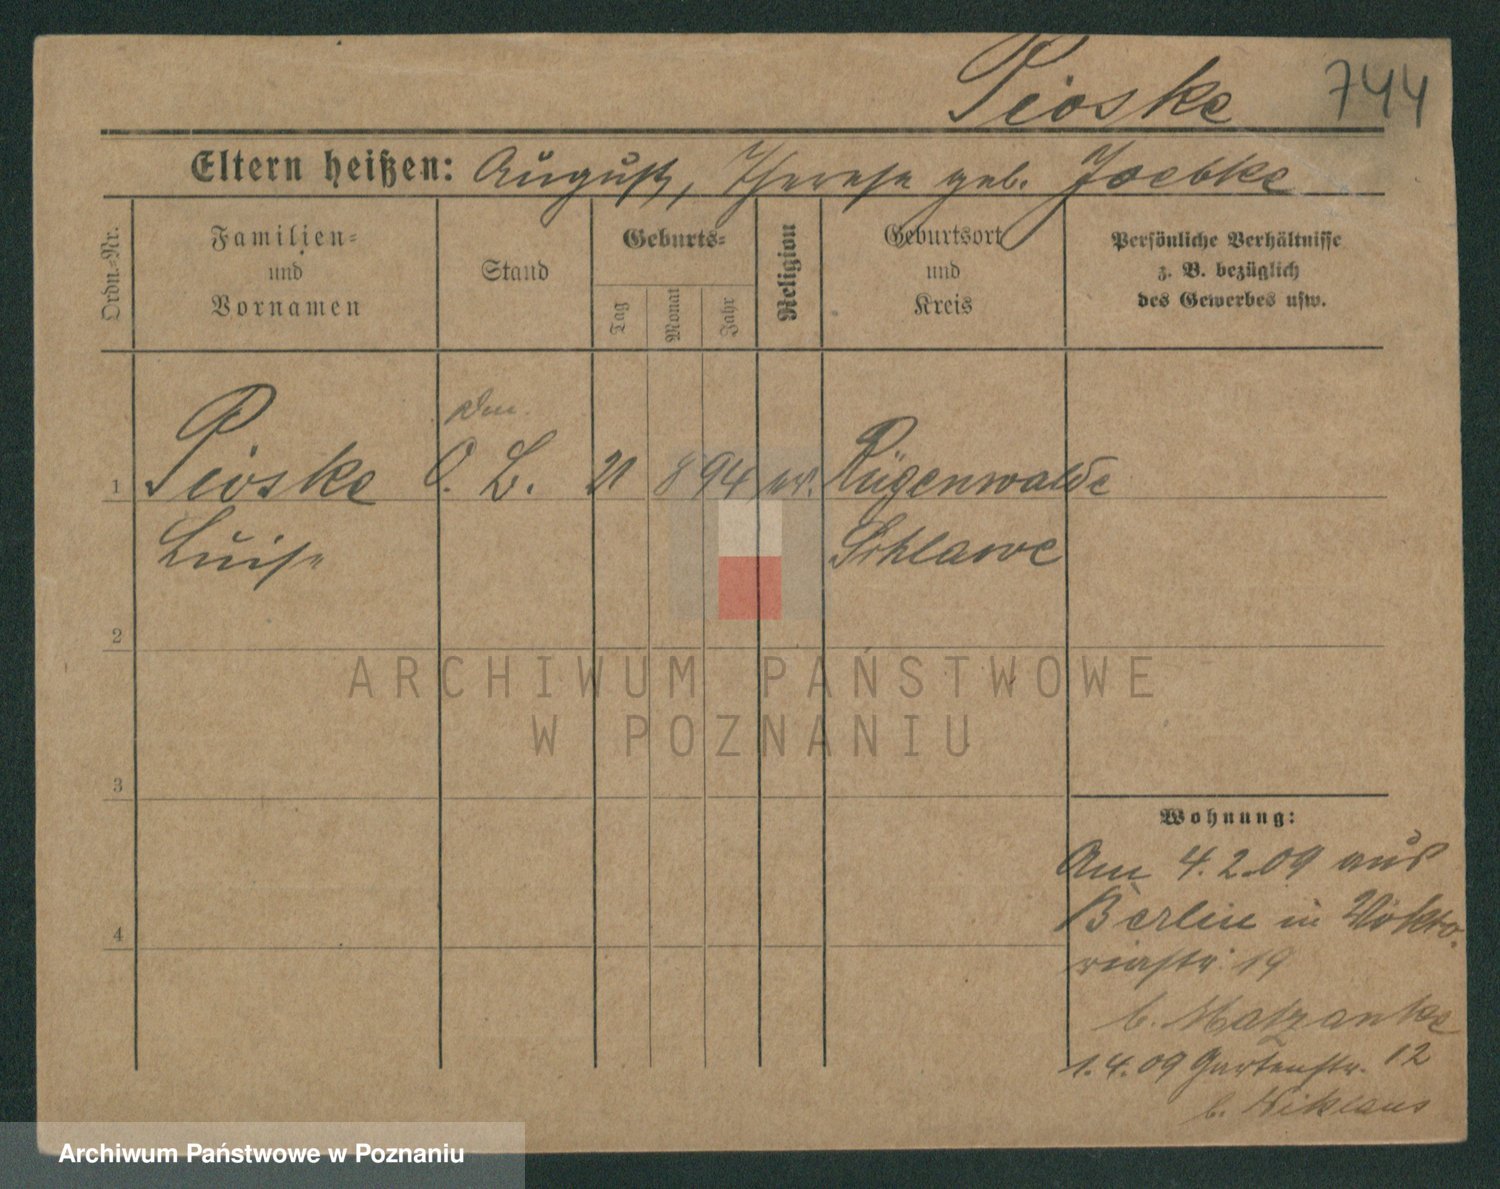 Pioske 744
Eltern heißen: August, Therese geb. Joebke
Ordn.-Nr.
Familien-
und
Vornamen
Stand
Geburts-
Tag
Monat
Jahr
Religion
Geburtsort
und
Kreis
Persönliche Verhältnisse
z. B. bezüglich
des Gewerbes usw.
1 Pioske O. L. 21 8 94 ev. Rügenwalde
Luise Schlawe
2
ARCHIWUM PAŃSTWOWE
W POZNANIU
3
Wohnung:
Am 4.2.09 aus
Berlin in Vikto-
riastr. 19
b. Matzanke
4
1.4.09 Gartenstr. 12
b. Niklaus
Archiwum Państwowe w Poznaniu